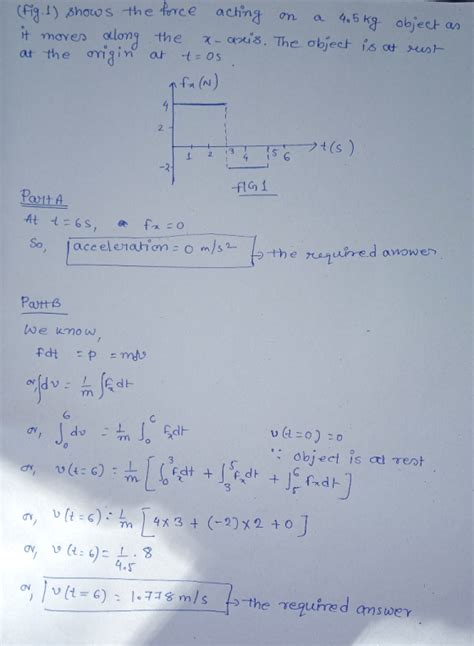 (Fig.1) shows the force acting on a 4.5 kg object as
it moves along the x-axis. The object is at rest
at the origin at t = 0s.
fx (N)
4
2
-2
1 2 3 4 5 6
t(s)
FIG 1
Part A
At t = 6s, fx = 0
So, acceleration = 0 m/s² → the required answer.
Part B
We know,
fdt = p = mdv
or, ∫dv = 1/m ∫fx dt
or, ∫₀⁶ dv = 1/m ∫₀⁶ fx dt v(t=0) = 0
∵ object is at rest.
or, v(t=6) = 1/m [∫₀³ fx dt + ∫₃⁵ fx dt + ∫₅⁶ fx dt]
or, v(t=6) = 1/m [4x3 + (-2)x2 + 0]
or, v(t=6) = 1/4.5 . 8
or, v(t=6) = 1.778 m/s → the required answer.